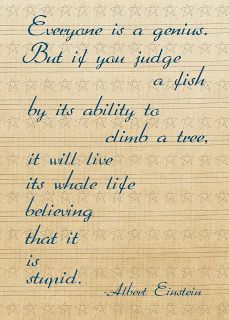 Everyone is a genius.
But if you judge
a fish
by its ability to
climb a tree,
it will live
its whole life
believing
that it
is
stupid.
-Albert Einstein